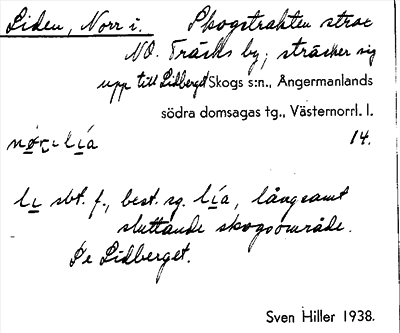 Liden, Norr i. Skogstrakten strax
NO. Träsks by; sträcker sig
upp till Lidberget Skogs s:n., Ångermanlands
södra domsagas tg., Västernorrl. l.
14.
li sbt. f., best. sg. lía, långsamt
sluttande skogsområde.
Se Lidberget.
Sven Hiller 1938.